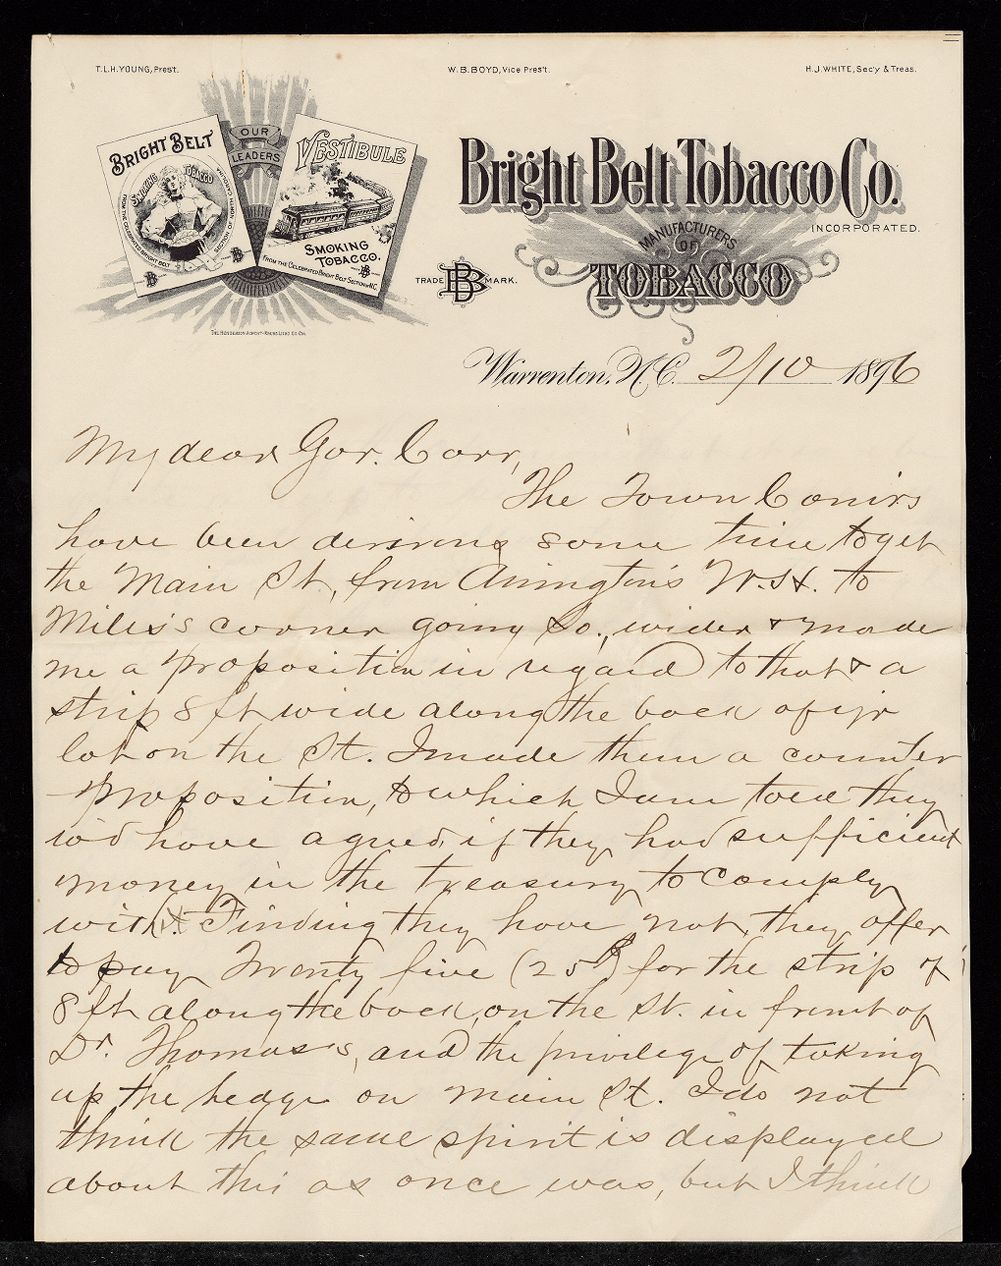 T.L.H. YOUNG, Pres't.
W.B. BOYD, Vice Pres't.
H.J. WHITE, Sec'y & Treas.
OUR
LEADERS
BRIGHT BELT
SMOKING TOBACCO
FROM THE CELEBRATED BRIGHT BELT SECTION OF NORTH CAROLINA
VESTIBULE
SMOKING
TOBACCO.
FROM THE CELEBRATED BRIGHT BELT SECTION N.C.
Bright Belt Tobacco Co.
INCORPORATED.
MANUFACTURERS
OF
TOBACCO
TRADE BB MARK.
Warrenton, N.C. 2/10 1896
My dear Gov. Carr,
The Town Comirs
have been desiring some time to get
the Main St, from Arrington's W.H. to
Miles's corner going So., wider & made
me a proposition in regard to that & a
strip 8 ft wide along the back of yr
lot on the St. I made them a counter
proposition, to which I am told they
wd have agreed, if they had sufficient
money in the treasury to comply
with it. Finding they have not, they offer
to pay Twenty five (25$) for the strip of
8 ft along the back, on the St. in front of
Dr. Thomas's, and the privilege of taking
up the hedge on Main St. I do not
think the same spirit is displayed
about this as once was, but I think